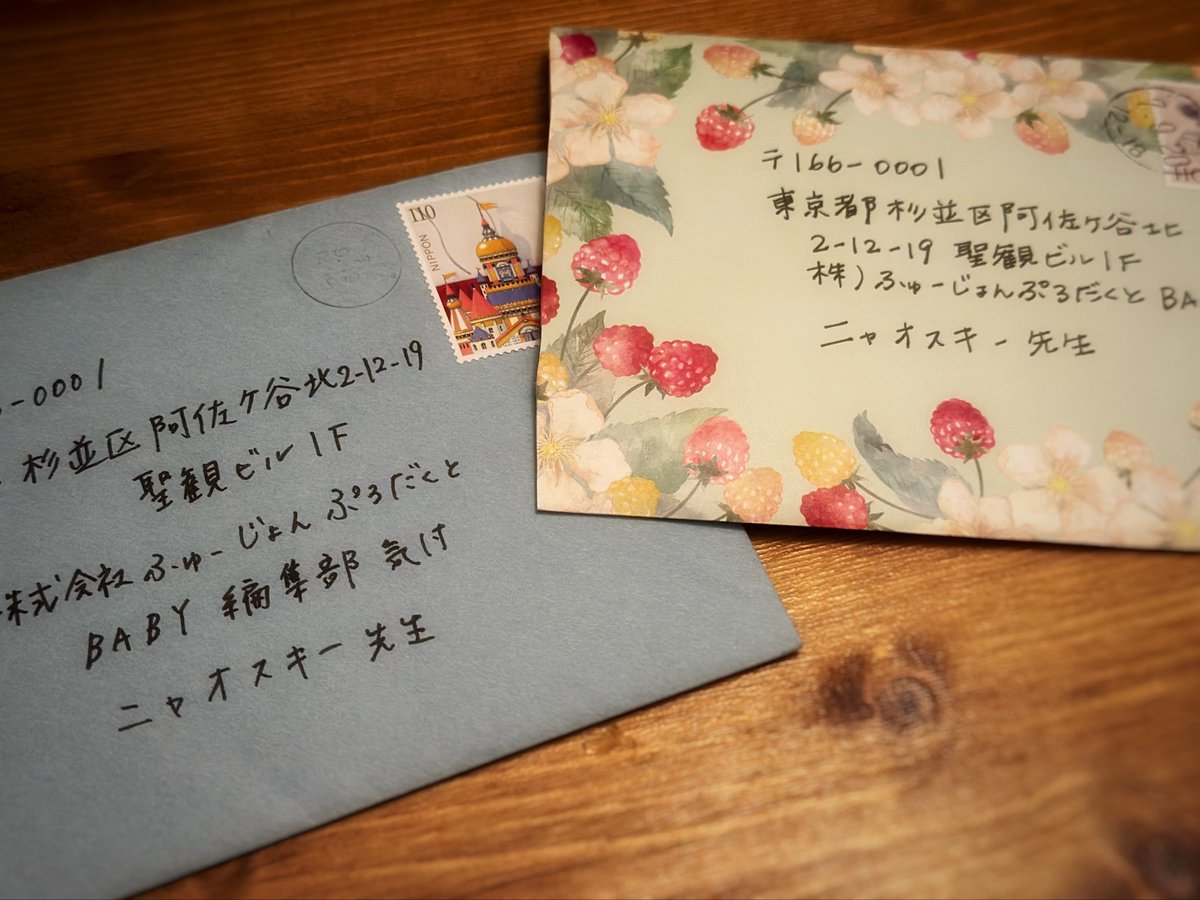 110
NIPPON
-0001
杉並区阿佐ケ谷北2-12-19
聖観ビル1F
株式会社ふゅーじょんぷろだくと
BABY 編集部 気付
ニャオスキー先生
〒166-0001
東京都杉並区阿佐ケ谷北
2-12-19 聖観ビル1F
株)ふゅーじょんぷろだくと BA
ニャオスキー先生